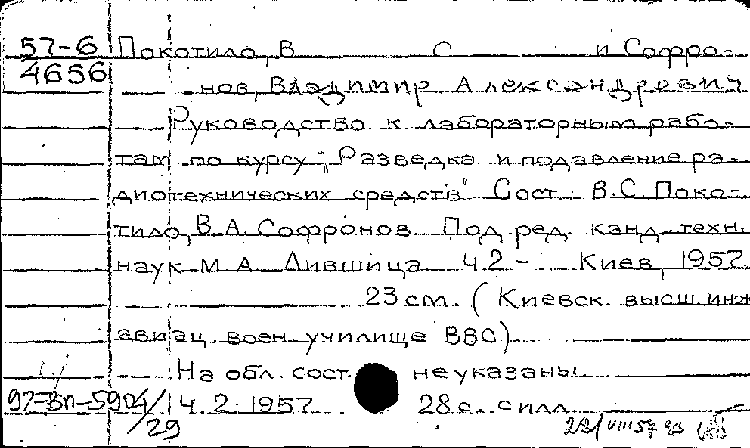 57-6 Покотило, В С и Софро-
4656 нов, Владимир Александрович
Руководство к лабораторным рабо-
там по курсу "Разведка и подавление ра-
диотехнических средств" Сост. В.С. Поко-
тило, В.А. Софронов. Под ред. канд. техн.
наук М.А. Лившица Ч.2 - Киев, 1957
23 см. (Киевск. высш. инж
авиац. воен. училище ВВС)
На обл. сост. не указаны
Ч.2. 1957 28 с. с илл.
29